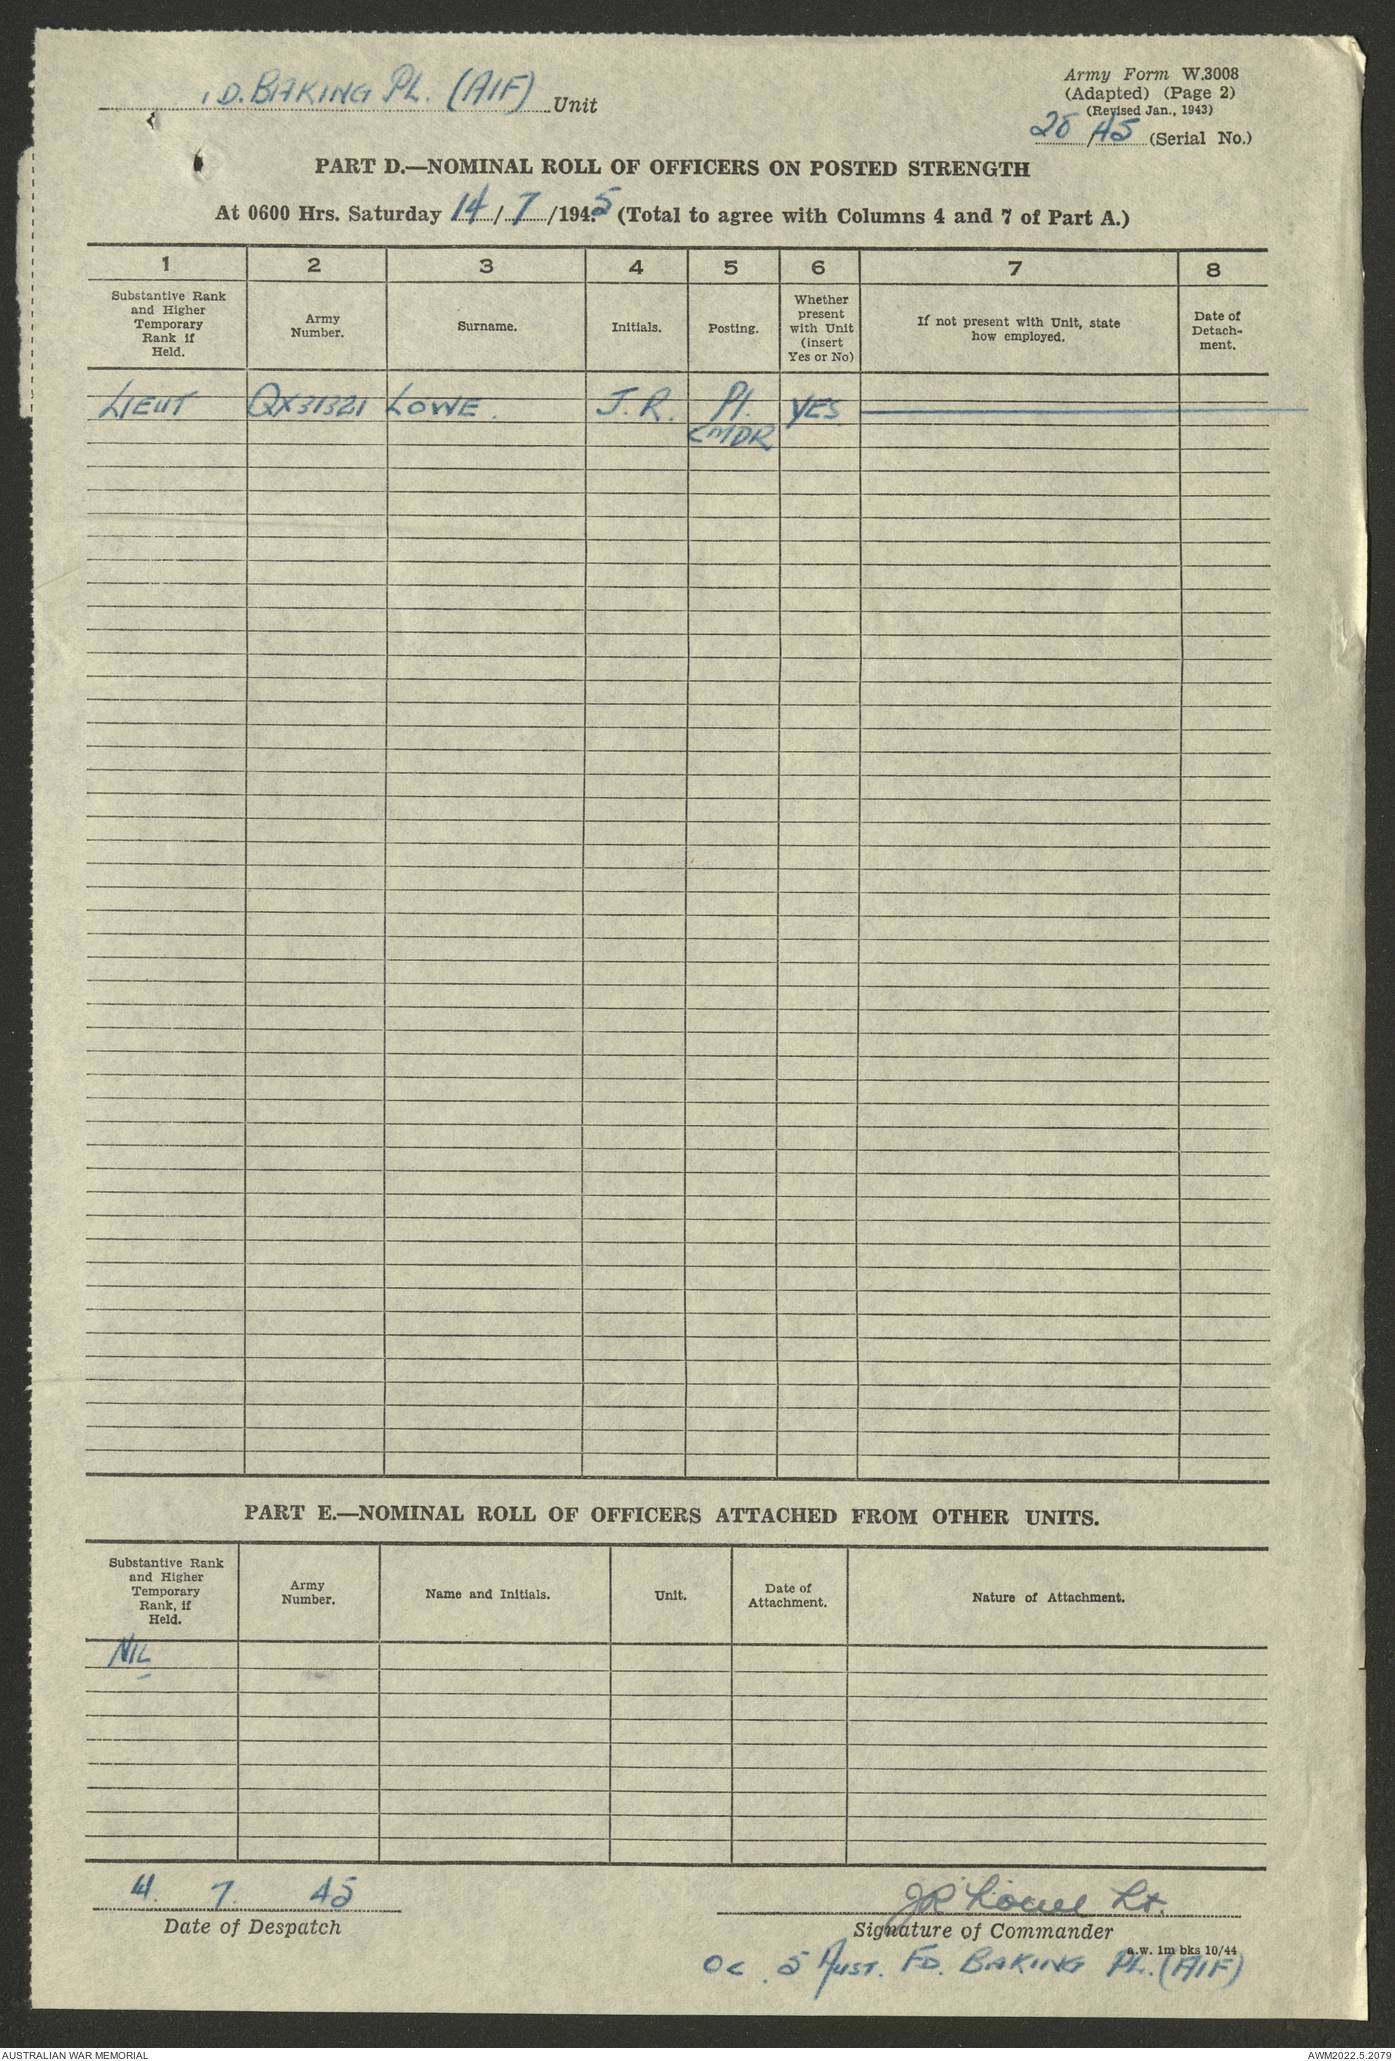 D. BAKING PL. (AIF) Unit
Army Form W.3008
(Adapted) (Page 2)
(Revised Jan., 1943)
/45 (Serial No.)
PART D.—NOMINAL ROLL OF OFFICERS ON POSTED STRENGTH
At 0600 Hrs. Saturday 14/7/1945 (Total to agree with Columns 4 and 7 of Part A.)
1 2 3 4 5 6 7 8
Substantive Rank and Higher Temporary Rank if Held.
Army Number.
Surname.
Initials.
Posting.
Whether present with Unit (insert Yes or No)
If not present with Unit, state how employed.
Date of Detach-ment.
LIEUT QX31321 LOWE. J.R. Pl. YES
CMDR
PART E.—NOMINAL ROLL OF OFFICERS ATTACHED FROM OTHER UNITS.
Substantive Rank and Higher Temporary Rank, if Held.
Army Number.
Name and Initials.
Unit.
Date of Attachment.
Nature of Attachment.
NIL
7. 45
JR Lowe Lt.
Date of Despatch
Signature of Commander
a.w. 1m bks 10/44
OC. 5 AUST. FD. BAKING PL. (AIF)
AUSTRALIAN WAR MEMORIAL
AWM2022.5.2079